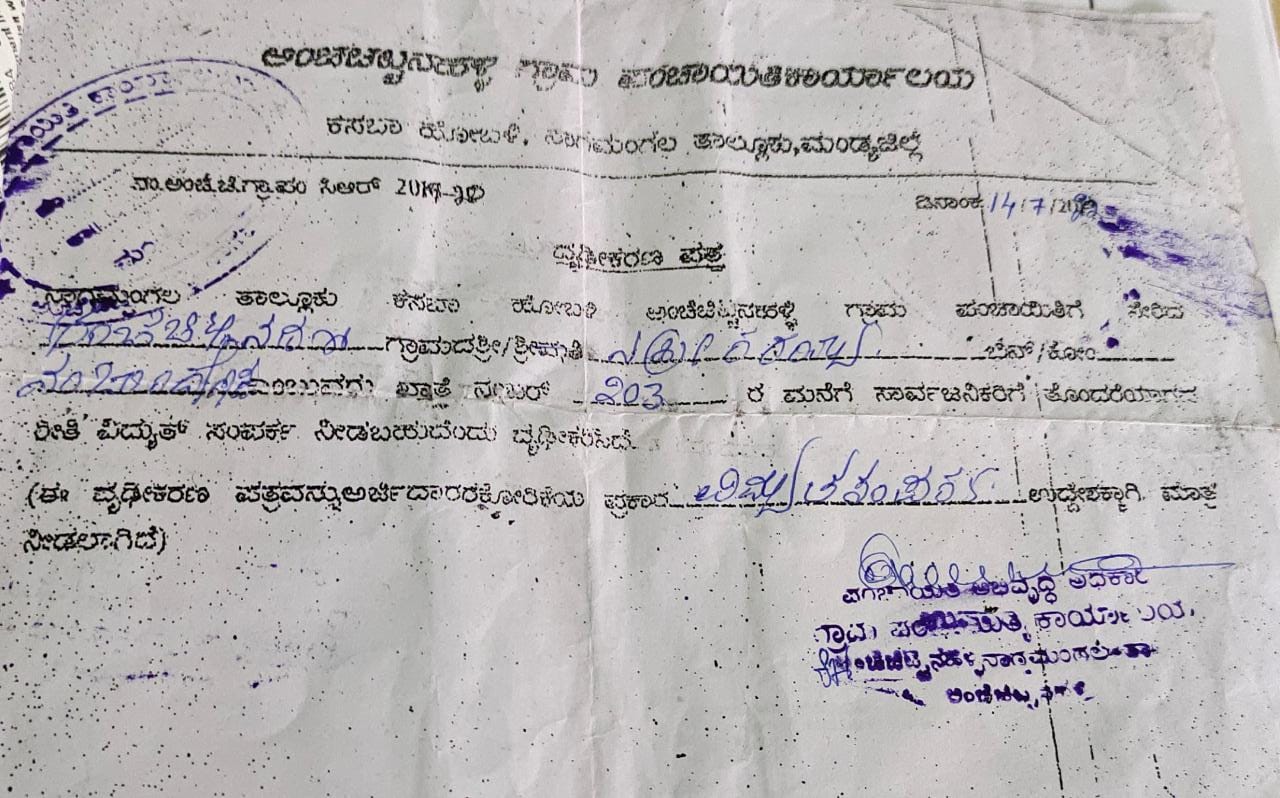 ಅಂಚೆಚಿಟ್ಟನಹಳ್ಳಿ ಗ್ರಾಮ ಪಂಚಾಯಿತಿಕಾರ್ಯಾಲಯ
ಕಸಬಾ ಹೋಬಳಿ, ನಾಗಮಂಗಲ ತಾಲ್ಲೂಕು,ಮಂಡ್ಯಜಿಲ್ಲೆ
ನಾ.ಅಂಚೆ.ಚಿ.ಗ್ರಾ.ಪಂ ಸಿಆರ್
ದಿನಾಂಕ 14/7/
ದೃಢೀಕರಣ ಪತ್ರ
ನಾಗಮಂಗಲ ತಾಲ್ಲೂಕು ಕಸಬಾ ಹೋಬಳಿ ಅಂಚೆಚಿಟ್ಟನಹಳ್ಳಿ ಗ್ರಾಮ ಪಂಚಾಯಿತಿಗೆ ಸೇರಿದ
ಗ್ರಾಮದಶ್ರೀ/ಶ್ರೀಮತಿ ಬಿನ್/ಕೋಂ
ಎಂಬುವರು ಖಾತೆ ನಂಬರ್ ೨೦೩ ರ ಮನೆಗೆ ಸಾರ್ವಜನಿಕರಿಗೆ ತೊಂದರೆಯಾಗದ
ರೀತಿ ವಿದ್ಯುತ್ ಸಂಪರ್ಕ ನೀಡಬಹುದೆಂದು ದೃಢೀಕರಿಸಿದೆ.
(ಈ ದೃಢೀಕರಣ ಪತ್ರವನ್ನುಅರ್ಜಿದಾರರಕೋರಿಕೆಯ ಪ್ರಕಾರ ವಿದ್ಯುತ ಸಂಪರ್ಕ ಉದ್ದೇಶಕ್ಕಾಗಿ ಮಾತ್ರ
ನೀಡಲಾಗಿದೆ)
ಪಂಚಾಯಿತಿ ಅಭಿವೃದ್ಧಿ ಅಧಿಕಾರಿ
ಗ್ರಾಮ ಪಂಚಾಯಿತಿ ಕಾರ್ಯಾಲಯ,
ಅಂಚೆಚಿಟ್ಟನಹಳ್ಳಿ ನಾಗಮಂಗಲ ತಾ